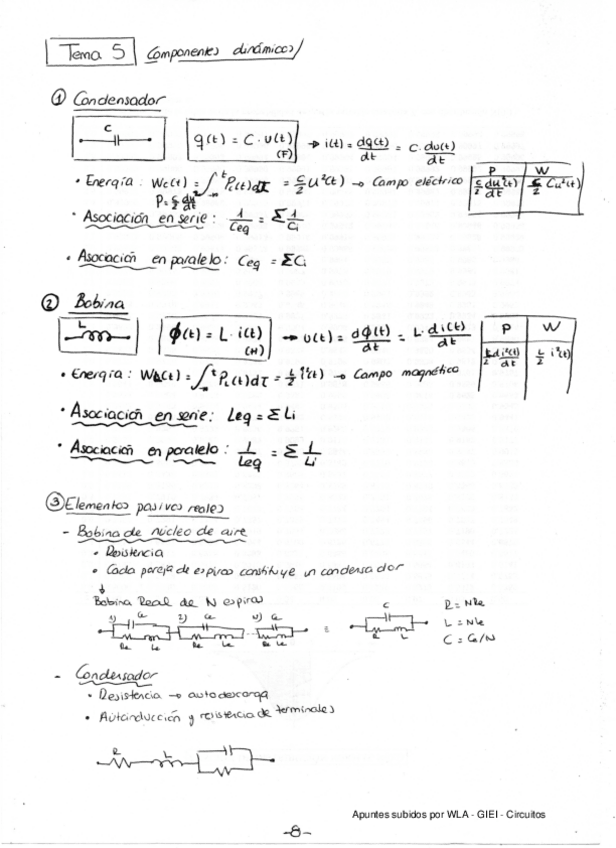 Tema 5 Componentes dinámicos
① Condensador
C
q(t) = C · u(t) (F) → i(t) = dq(t)/dt = C · du(t)/dt
P W
• Energía: Wc(t) = ∫_{-∞}^{t} Pc(t)dτ = C/2 u²(t) → Campo eléctrico
C/2 du²(t)/dt C/2 Cu²(t)
P = C/2 du²/dt
• Asociación en serie: 1/Ceq = Σ 1/Ci
• Asociación en paralelo: Ceq = ΣCi
② Bobina
L
ϕ(t) = L · i(t) (H) → u(t) = dϕ(t)/dt = L · di(t)/dt
P W
L/2 di²(t)/dt L/2 i²(t)
• Energía: (t) = ∫_{-∞}^{t} PL(t)dτ = L/2 i²(t) → Campo magnético
• Asociación en serie: Leq = Σ Li
• Asociación en paralelo: 1/Leq = Σ 1/Li
③ Elementos pasivos reales
- Bobina de núcleo de aire
• Resistencia
• Cada pareja de espiras constituye un condensador
↓
Bobina Real de N espiras
1) Ce 2) Ce N) Ce C R = NRe
Re Le Re Le Re Le R L L = NLe
C = Ce/N
- Condensador
• Resistencia → autodescarga
• Autoinducción y resistencia de terminales
R L
Apuntes subidos por WLA - GIEI - Circuitos
-8-